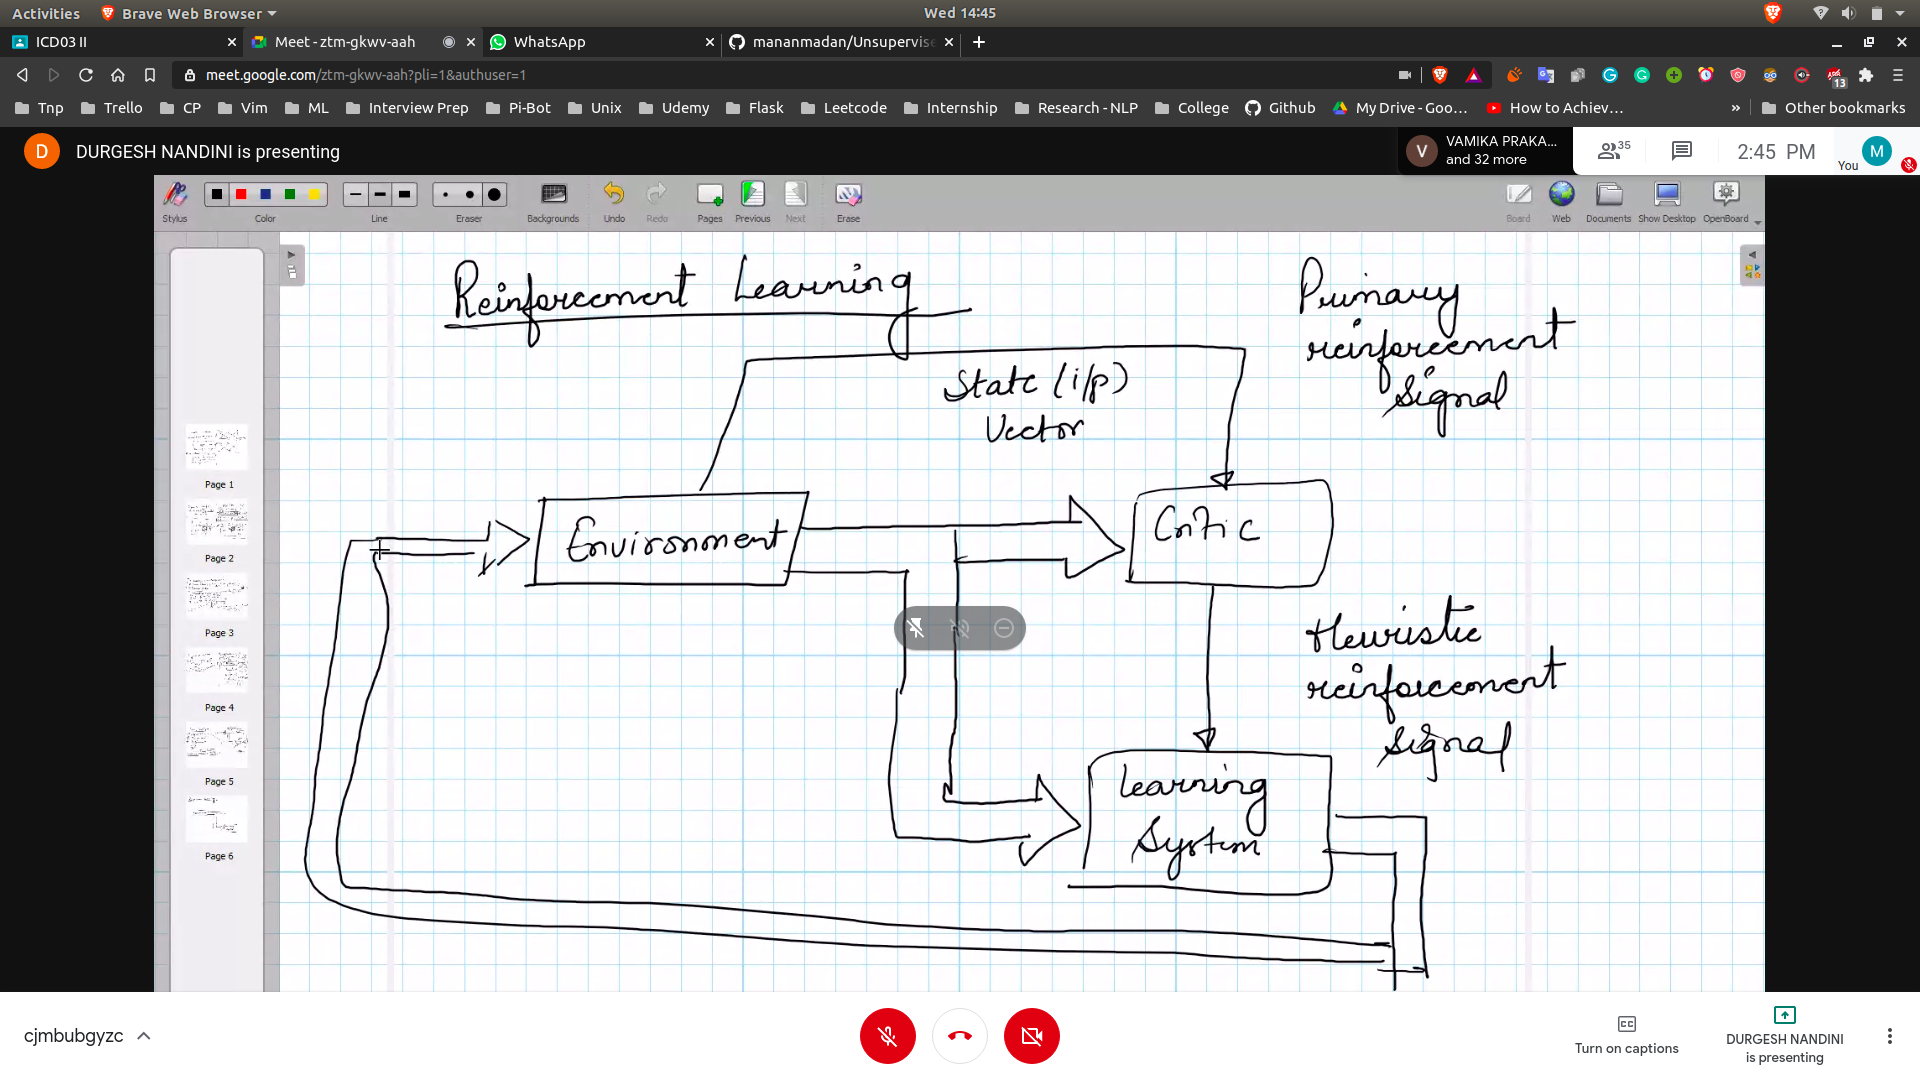 Activities
Brave Web Browser
Wed 14:45
ICD03 II
Meet - ztm-gkwv-aah
WhatsApp
mananmadan/Unsupervise
meet.google.com/ztm-gkwv-aah?pli=1&authuser=1
13
Tnp
Trello
CP
Vim
ML
Interview Prep
Pi-Bot
Unix
Udemy
Flask
Leetcode
Internship
Research - NLP
College
Github
My Drive - Goo...
How to Achiev...
»
Other bookmarks
D
DURGESH NANDINI is presenting
V
VAMIKA PRAKA...
and 32 more
35
2:45 PM
You
M
Stylus
Color
Line
Eraser
Backgrounds
Undo
Redo
Pages
Previous
Next
Erase
Board
Web
Documents
Show Desktop
OpenBoard
Page 1
Page 2
Page 3
Page 4
Page 5
Page 6
Reinforcement Learning
Primary
reinforcement
Signal
State (i/p)
Vector
Environment
Critic
Heuristic
reinforcement
Signal
Learning
System
cjmbubgyzc
Turn on captions
DURGESH NANDINI
is presenting